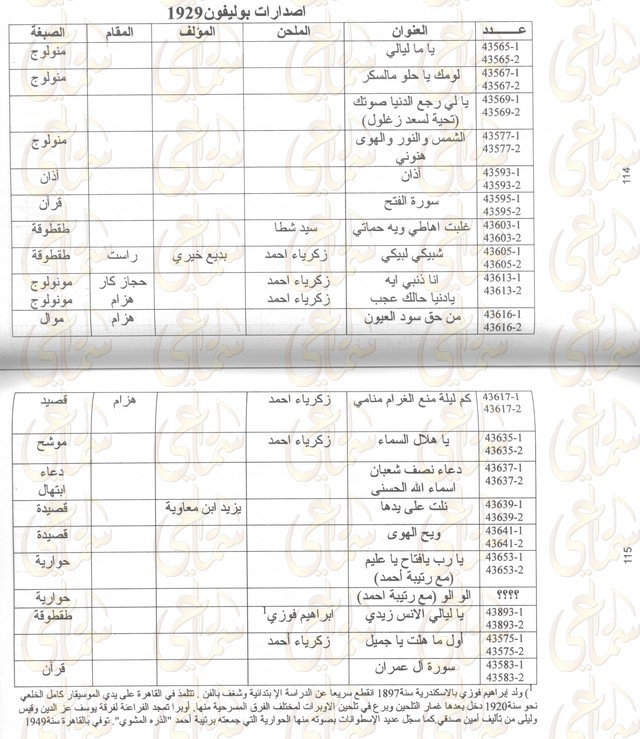 اصدارات بوليفون1929
عـــــدد العنوان الملحن المؤلف المقام الصبغة
43565-1 يا ما ليالي منولوج
43565-2
43567-1 لومك يا حلو مالسكر منولوج
43567-2
43569-1 يا لي رجع الدنيا صوتك
43569-2 (تحية لسعد زغلول)
43577-1 الشمس والنور والهوى منولوج
43577-2 هنوني
43593-1 آذان آذان
43593-2
43595-1 سورة الفتح قرآن
43595-2
43603-1 غلبت اهاطي ويه حماتي سيد شطا طقطوقة
43603-2
43605-1 شبيكي لبيكي زكرياء احمد بديع خيري راست طقطوقة
43605-2
43613-1 انا ذنبي ايه زكرياء احمد حجاز كار مونولوج
43613-2 يادنيا حالك عجب زكرياء احمد هزام مونولوج
43616-1 من حق سود العيون هزام موال
43616-2
114
43617-1 كم ليلة منع الغرام منامي زكرياء احمد هزام قصيد
43617-2
43635-1 يا هلال السماء زكرياء احمد موشح
43635-2
43637-1 دعاء نصف شعبان دعاء
43637-2 اسماء الله الحسنى ابتهال
43639-1 نلت على يدها يزيد ابن معاوية قصيدة
43639-2
43641-1 ويح الهوى قصيدة
43641-2
43653-1 يا رب يافتاح يا عليم حوارية
43653-2 (مع رتيبة أحمد)
؟؟؟؟ الو الو (مع رتيبة احمد) حوارية
43893-1 يا ليالي الانس زيدي ابراهيم فوزي1 طقطوقة
43893-2
43575-1 أول ما هلت يا جميل زكرياء أحمد
43575-2
43583-1 سورة آل عمران قرآن
43583-2
115
1) ولد إبراهيم فوزي بالاسكندرية سنة1897 انقطع سريعا عن الدراسة الإ بتدائية وشغف بالفن . تتلمذ في القاهرة على يدي الموسيقار كامل الخلعي
نحو سنة1920 دخل بعدها غمار التلحين وبرع في تلحين الاوبرات لمختلف الفرق المسرحية منها. أوبرا تمجد الفراعنة لفرقة يوسف عز الدين وقيس
وليلى من تأليف أمين صدقي كما سجل عديد الإسطوانات بصوته منها الحوارية التي جمعته برتيبة أحمد "الذره المشوي". توفي بالقاهرة سنة1949